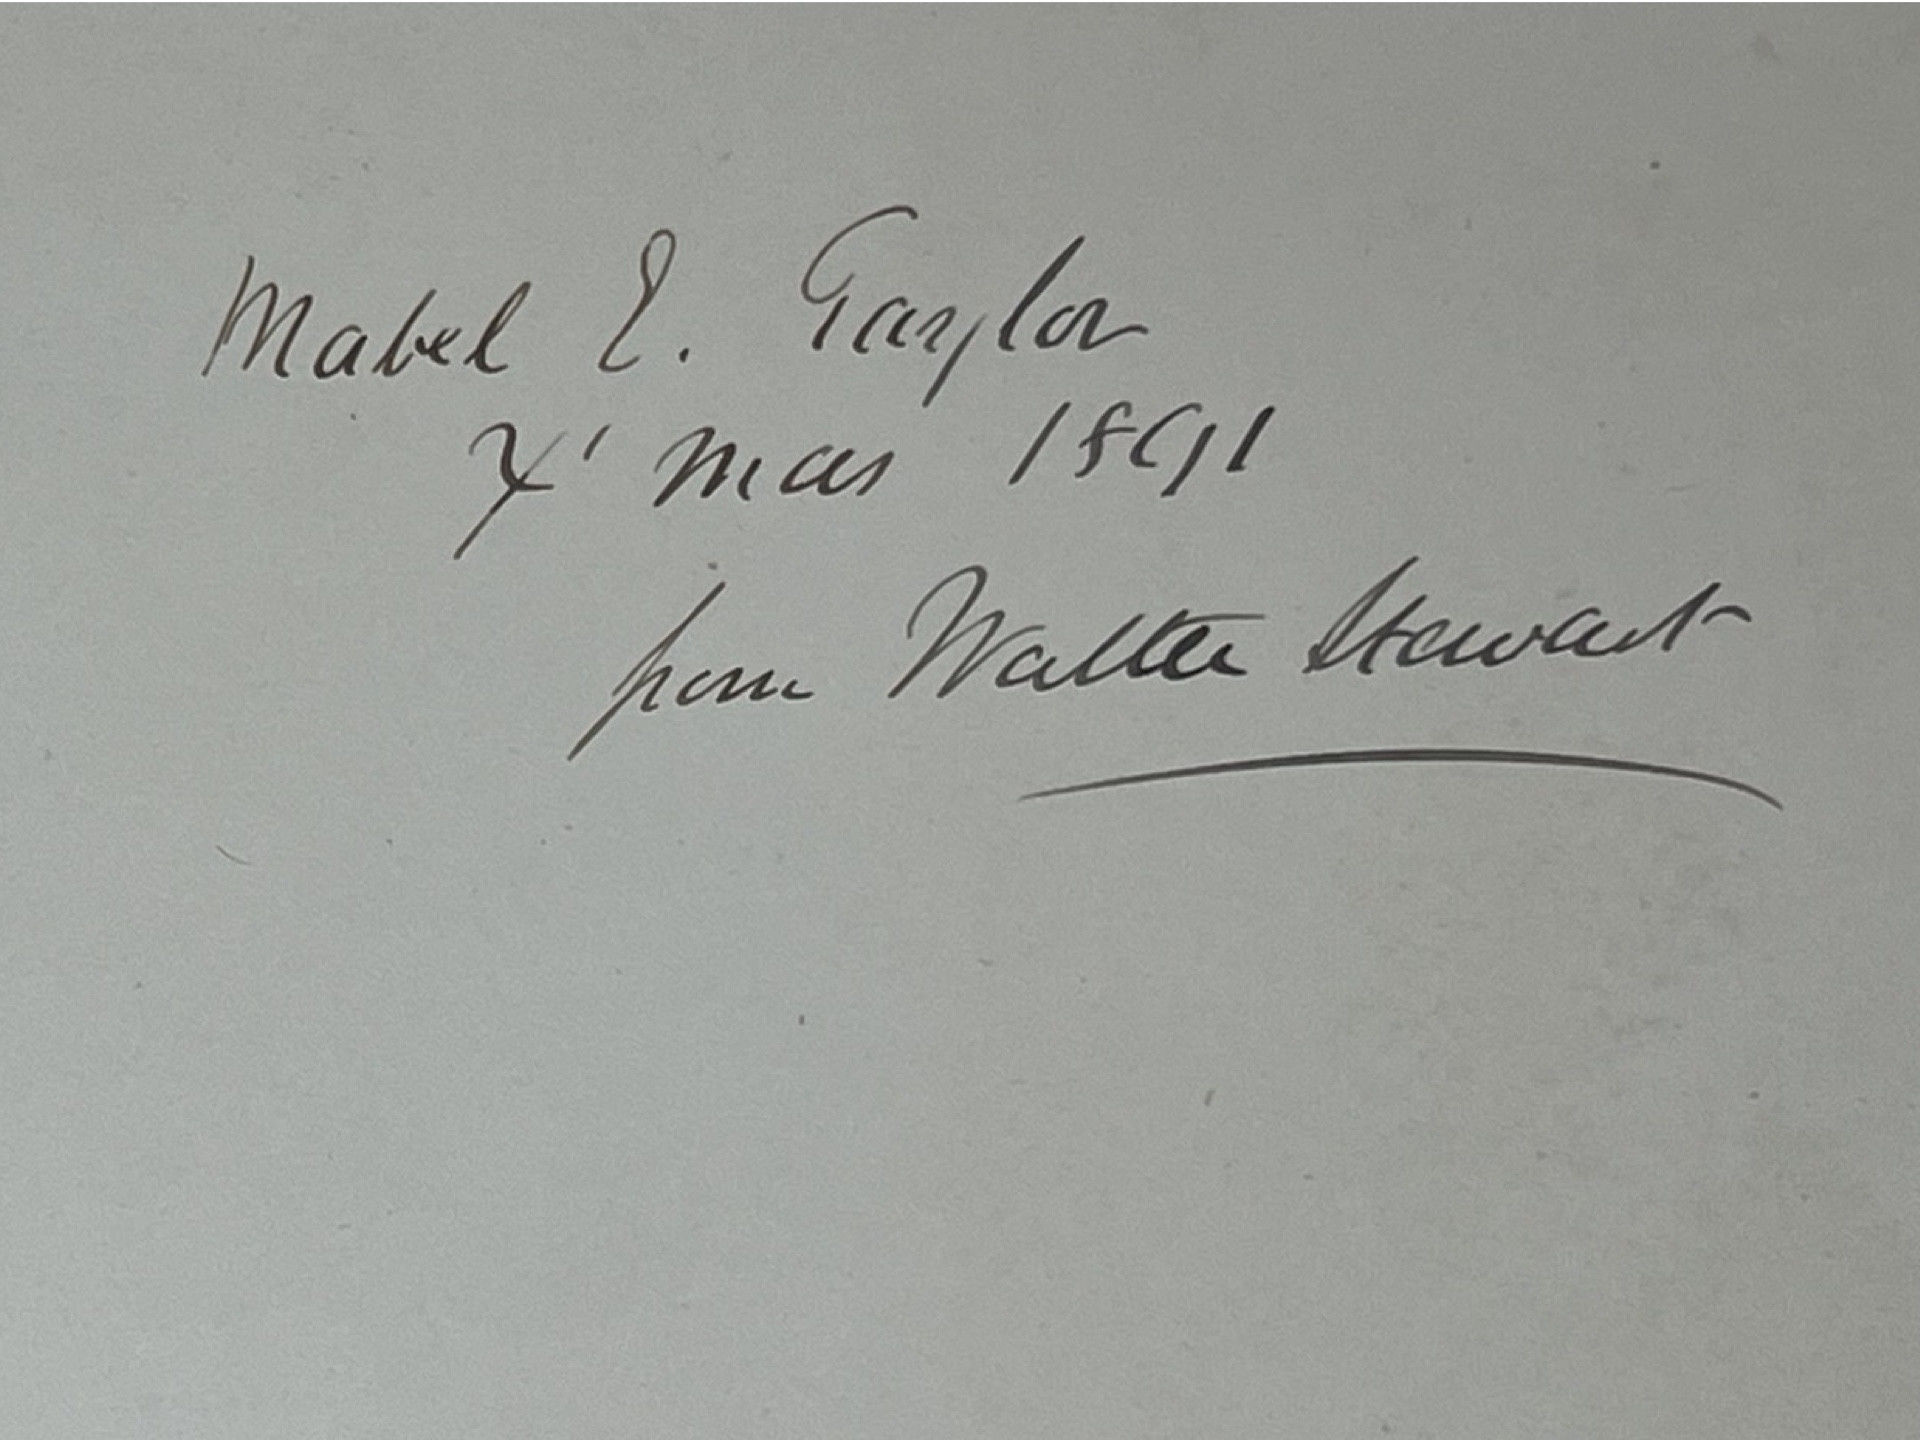 Mabel E. Taylor
X'mas 1891
from Walter Stewart